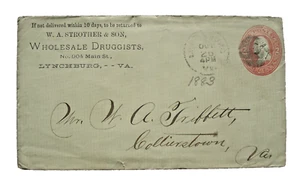 If not delivered within 10 days, to be returned to
W. A. STROTHER & SON,
WHOLESALE DRUGGISTS,
No. 905 Main St.,
LYNCHBURG, - - VA.
1883
Mr. W. A. Tribbett,
Collierstown,
Va.